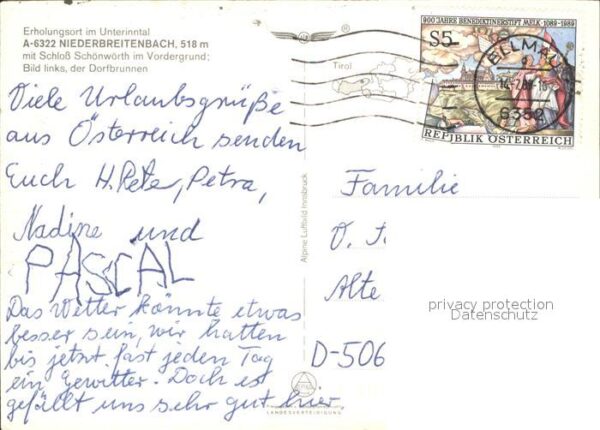 Erholungsort im Unterinntal
A-6322 NIEDERBREITENBACH, 518 m
mit Schloß Schönwörth im Vordergrund;
Bild links, der Dorfbrunnen
Viele Urlaubsgrüße
aus Österreich senden
Euch H. Peter, Petra,
Nadine und
PASCAL
Das Wetter könnte etwas
besser sein, wir hatten
bis jetzt fast jeden Tag
ein Gewitter. Doch es
gefällt uns sehr gut hier.
Tirol
Alpine Luftbild Innsbruck
LANDESVERTEIDIGUNG
900 JAHRE BENEDIKTINERSTIFT MELK · 1089-1989
S5
REPUBLIK ÖSTERREICH
ELLMAU
6352
Familie
Alte
D-506
privacy protection
Datenschutz